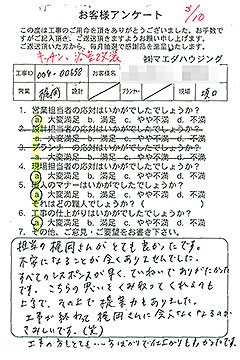 お客様アンケート
3/10
この度は工事のご用命を頂きありがとうございました。お手数で
すがご記入頂き、ご返送頂きますようお願い申し上げます。
ご返送頂いた方から、毎月抽選で感謝品を進呈いたします。
キッチン、浴室改装
㈱マエダハウジング
工事ID 004-00658 お客様名
営業 梶岡 設計 プランナー 現場 坂口
1. 営業担当者の応対はいかがでしたでしょうか?
a. 大変満足 b. 満足 c. やや不満 d. 不満
2. 設計担当者の応対はいかがでしたでしょうか?
a. 大変満足 b. 満足 c. やや不満 d. 不満
3. プランナーの応対はいかがでしたでしょうか?
a. 大変満足 b. 満足 c. やや不満 d. 不満
4. 現場担当者の応対はいかがでしたでしょうか?
a. 大変満足 b. 満足 c. やや不満 d. 不満
5. 職人のマナーはいかがでしたでしょうか?
a. 大変満足 b. 満足 c. やや不満 d. 不満
それはどの職人でしょうか? ( )
6. 工事の仕上がりはいかがでしたでしょうか?
a. 大変満足 b. 満足 c. やや不満 d. 不満
7. その他、ご意見・ご要望をお書き下さい。
担当の梶岡さんがとても良かったです。
不安になることが全くありませんでした。
すべてのレスポンスが早く、ていねいでありがたかった
です。こちらの思いをくみ取ってくれるのも
上手で、その上で提案力もありました。
工事が終わって梶岡さんに会えなくなるのが
さみしいです。(笑)
工事の方もとても